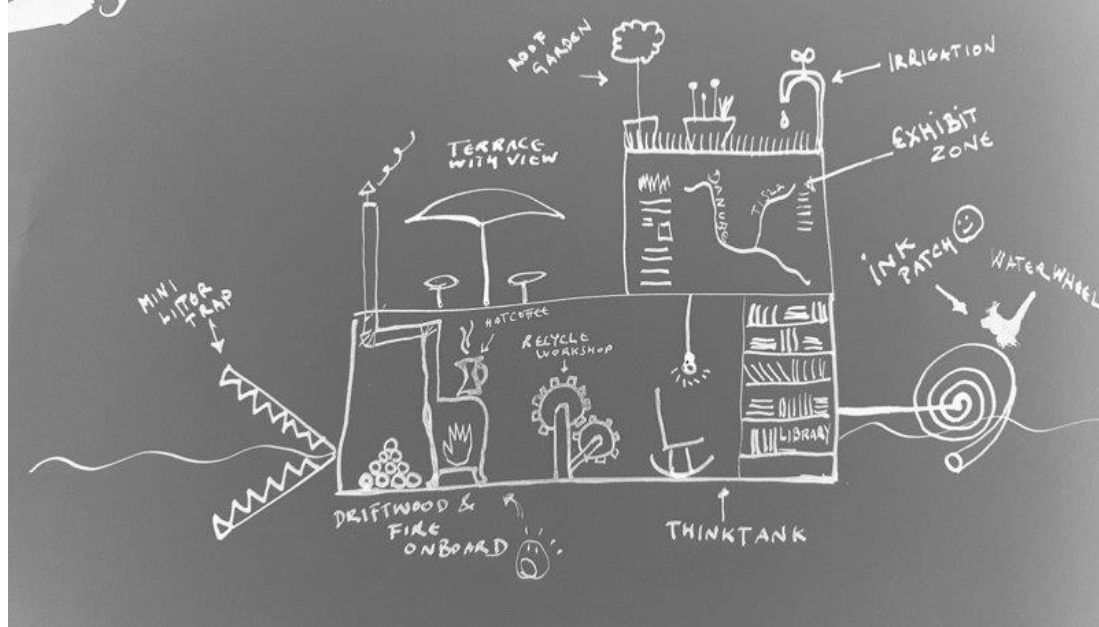 ROOF
GARDEN
IRRIGATION
EXHIBIT
ZONE
TERRACE
WITH VIEW
DANUBE
TISZA
INK
PATCH
WATERWHEEL
MINI
LITTER
TRAP
HOT COFFEE
RECYCLE
WORKSHOP
LIBRARY
DRIFTWOOD &
FIRE
ONBOARD
THINKTANK